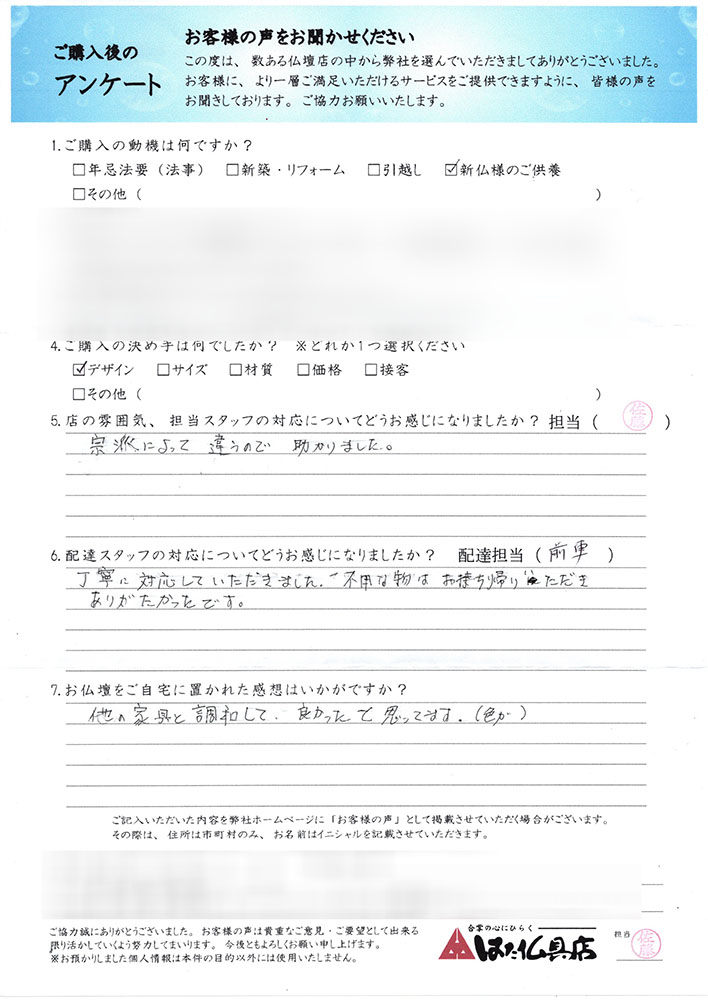 ご購入後の
アンケート
お客様の声をお聞かせください
この度は、数ある仏壇店の中から弊社を選んでいただきましてありがとうございました。
お客様に、より一層ご満足いただけるサービスをご提供できますように、皆様の声を
お聞きしております。ご協力お願いいたします。
1.ご購入の動機は何ですか？
□年忌法要（法事） □新築・リフォーム □引越し ☑新仏様のご供養
□その他（ ）
4.ご購入の決め手は何でしたか？ ※どれか1つ選択ください
☑デザイン □サイズ □材質 □価格 □接客
□その他（ ）
5.店の雰囲気、担当スタッフの対応についてどうお感じになりましたか？担当（佐藤）
宗派によって 違うので 助かりました。
6.配達スタッフの対応についてどうお感じになりましたか？ 配達担当（前車）
丁寧に対応していただきました。不用な物はお持ち帰りいただき
ありがたかったです。
7.お仏壇をご自宅に置かれた感想はいかがですか？
他の家具と調和して、良かったと思ってます。(色が)
ご記入いただいた内容を弊社ホームページに「お客様の声」として掲載させていただく場合がございます。
その際は、住所は市町村のみ、お名前はイニシャルを記載させていただきます。
ご協力誠にありがとうございました。お客様の声は貴重なご意見・ご要望として出来る
限り活かしていくよう努力してまいります。今後ともよろしくお願い申し上げます。
※お預かりしました個人情報は本件の目的以外には使用いたしません。
合掌の心にひらく
はた仏具店
担当 佐藤